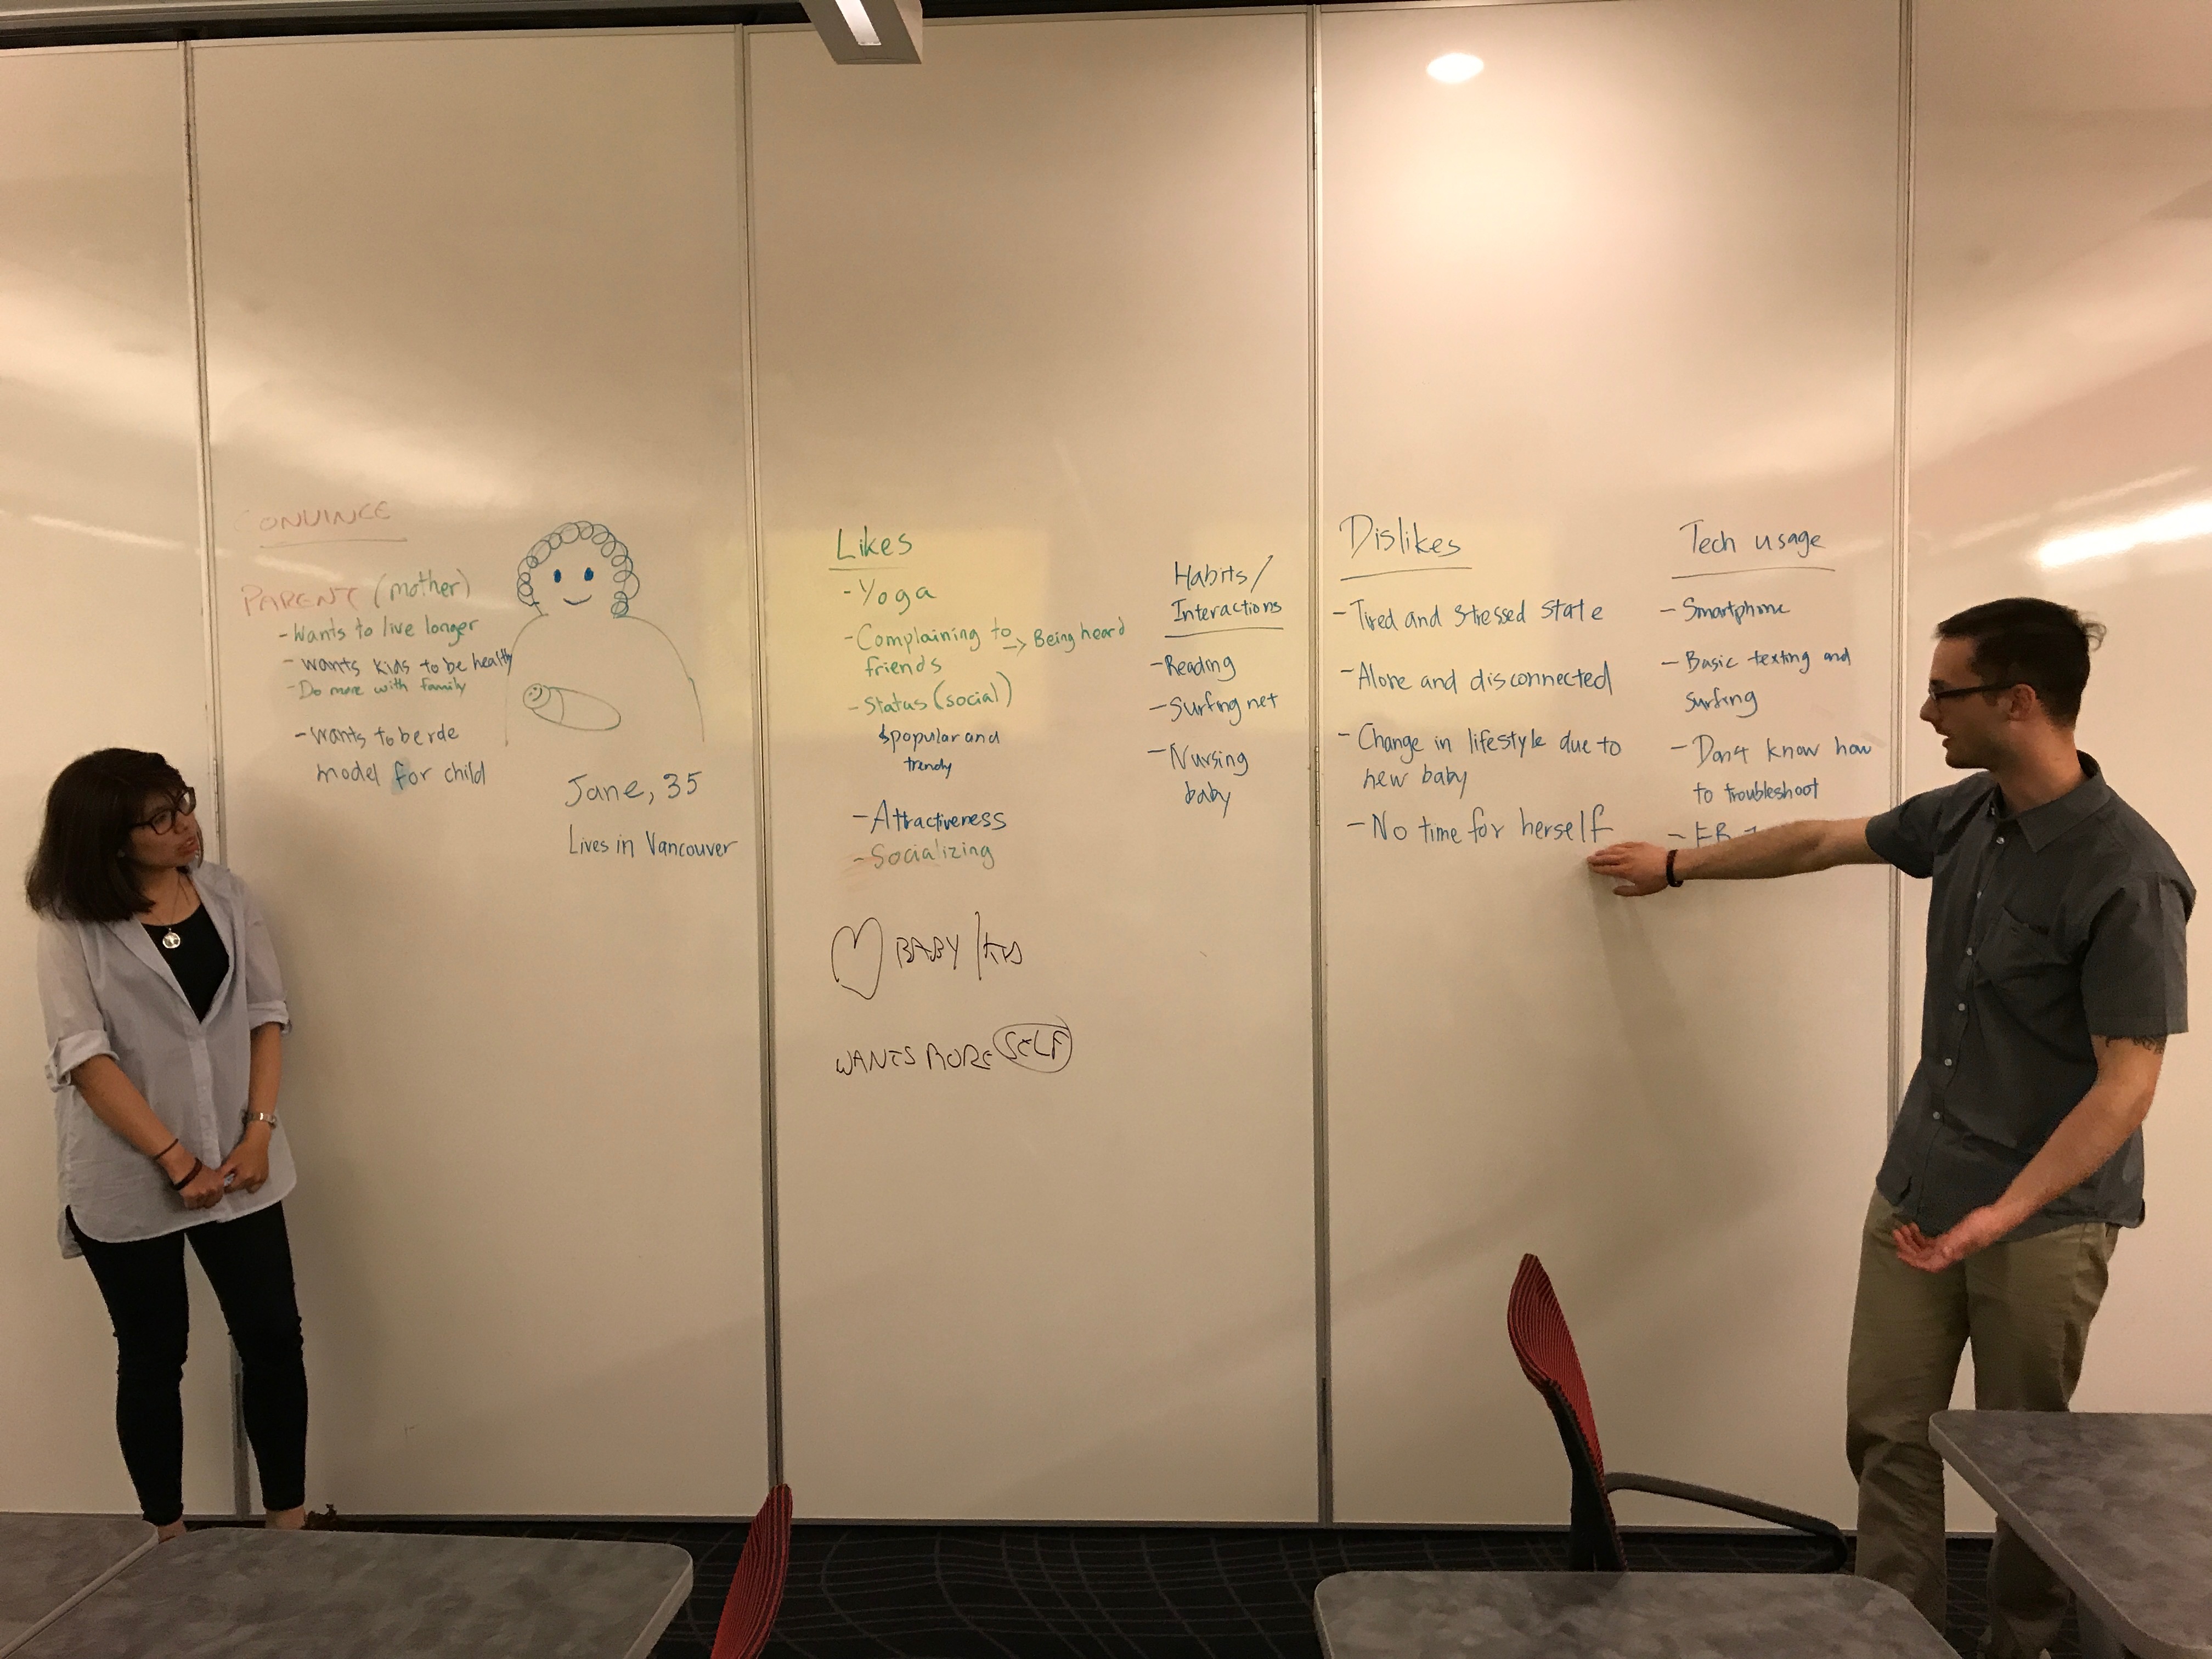 CONVINCE
PARENT (mother)
- Wants to live longer
- wants kids to be healthy
- Do more with family
- wants to be role
model for child
Jane, 35
Lives in Vancouver
Likes
- Yoga
- Complaining to -> Being heard
friends
- Status (social)
popular and
trendy
- Attractiveness
- Socializing
BABY /
WANTS MORE SELF
Habits/
Interactions
- Reading
- Surfing net
- Nursing
baby
Dislikes
- Tired and stressed state
- Alone and disconnected
- Change in lifestyle due to
new baby
- No time for herself
Tech usage
- Smartphone
- Basic texting and
surfing
- Don't know how
to troubleshoot
- FB